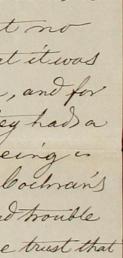 no
it was
, and for
had a
being
Cochran's
trouble
trust that